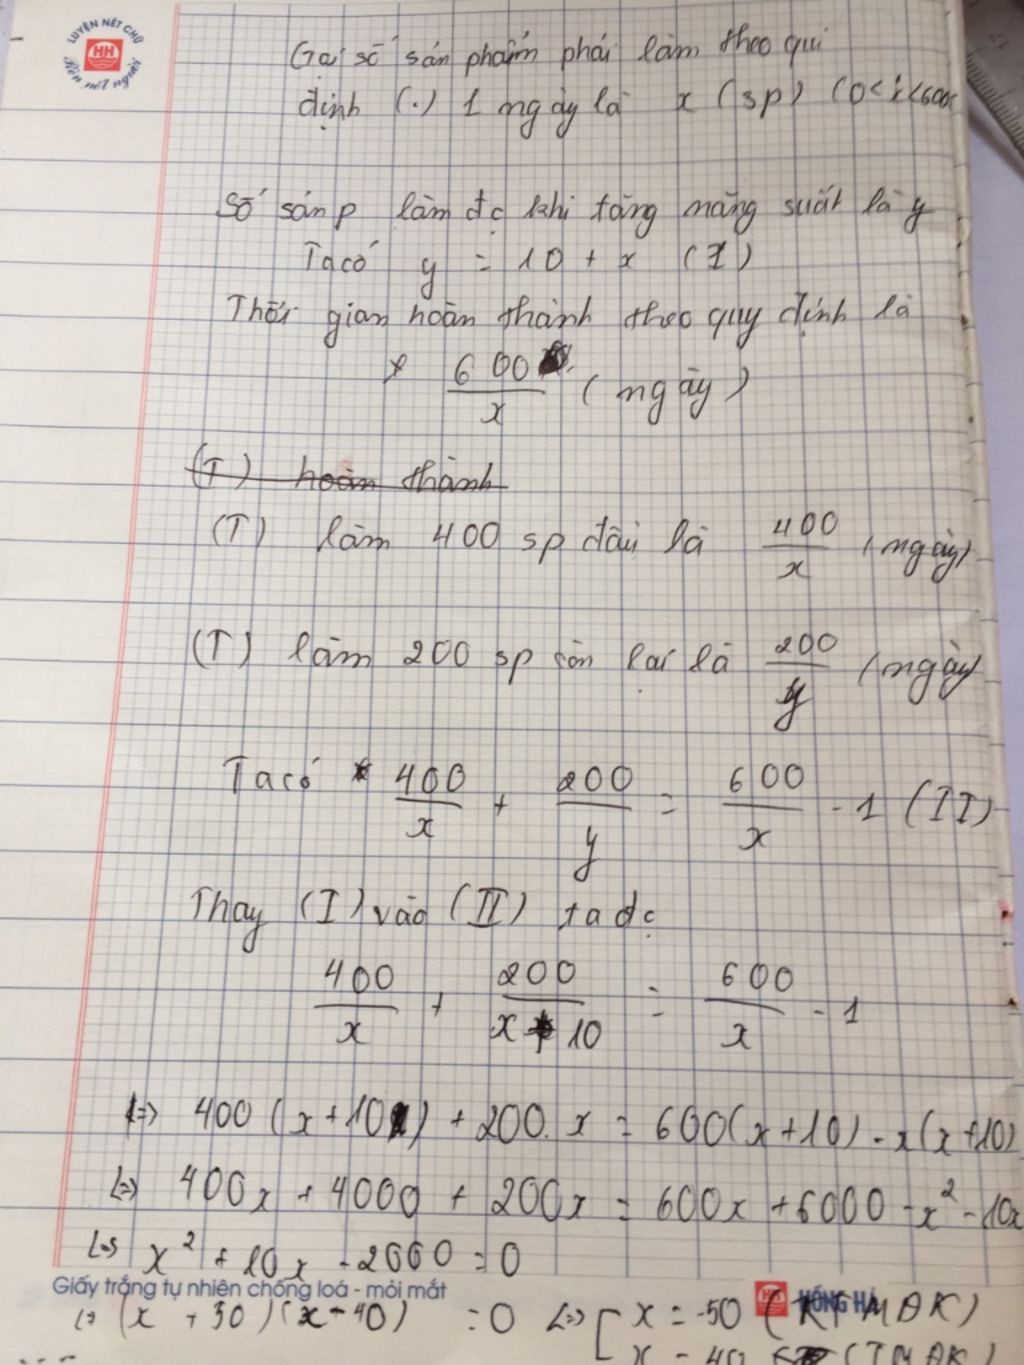 LUYỆN NÉT CHỮ
HH
Rèn nết người
Gọi số sản phẩm phải làm theo qui
định (.) 1 ngày là x (sp) (0<x<600)
Số sản p làm đc khi tăng năng suất là y
Ta có y = 10 + x (I)
Thời gian hoàn thành theo quy định là
600/x (ngày)
(T) hoàn thành
(T) làm 400 sp đầu là 400/x (ngày)
(T) làm 200 sp còn lại là 200/y (ngày)
Ta có 400/x + 200/y = 600/x - 1 (II)
Thay (I) vào (II) ta đc
400/x + 200/x+10 = 600/x - 1
<=> 400(x+10) + 200.x = 600(x+10) - x(x+10)
<=> 400x + 4000 + 200x = 600x + 6000 - x² - 10x
<=> x² + 10x - 2000 = 0
Giấy trắng tự nhiên chống loá - mỏi mắt
HỒNG HÀ
<=> (x + 50)(x - 40) = 0 <=> [ x = -50 (KTMĐK)
x = 40 (TMĐK)